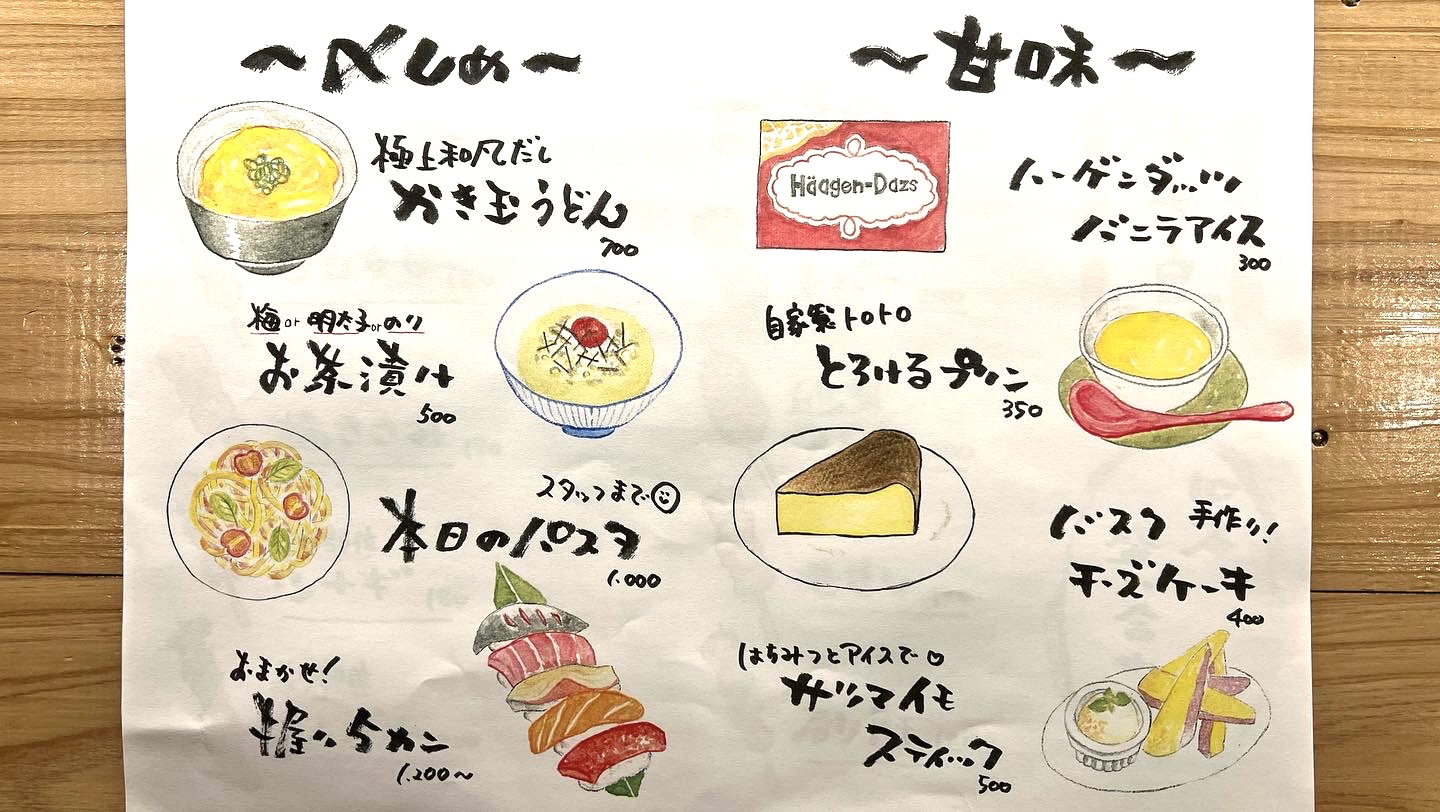 〜〆しめ〜
極上和風だし
おき玉うどん
700
梅or明太子orのり
お茶漬け
500
スタッフまで
本日のパスタ
1.000
おまかせ!
握り5カン
1.200〜
〜甘味〜
Häagen-Dazs
ハーゲンダッツ
バニラアイス
300
自家製トロトロ
とろけるプリン
350
バスク 手作り!
チーズケーキ
400
はちみつとアイスで♡
サツマイモ
スティック
500